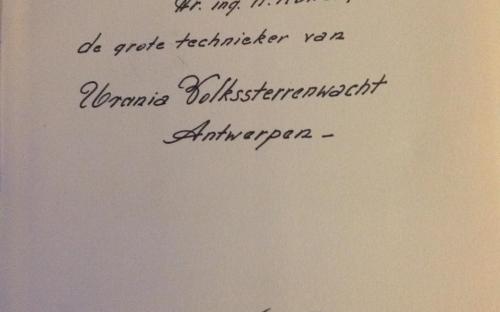 Hr. ing.
de grote technieker van
Urania Volkssterrenwacht
Antwerpen –